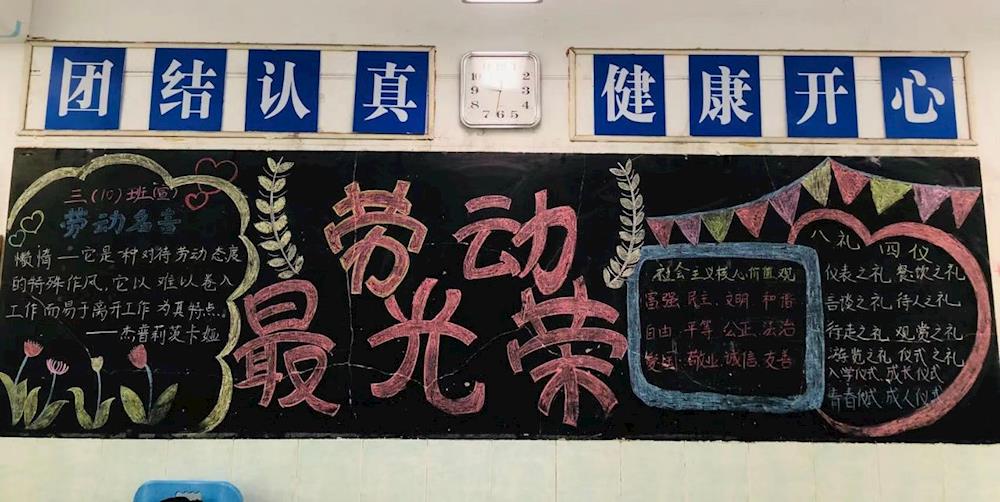 团结认真
健康开心
10 9 8 7 6 5 4 3 2
三(10)班(宣)
劳动名言
懒惰——它是一种对待劳动态度
的特殊作风。它以难以卷入
工作而易于离开工作为其特点。
——杰普莉茨卡娅
劳动
最光荣
社会主义核心价值观
富强 民主 文明 和谐
自由 平等 公正 法治
爱国 敬业 诚信 友善
八礼四仪
仪表之礼 餐饮之礼
言谈之礼 待人之礼
行走之礼 观赏之礼
游览之礼 仪式之礼
入学仪式 成长仪式
青春仪式 成人仪式